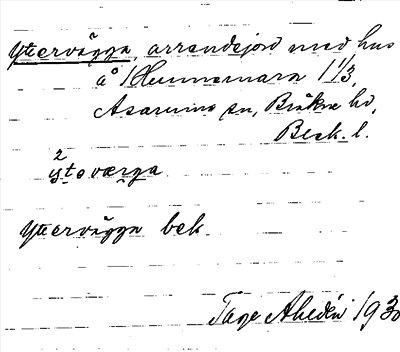 Yttervägga, arrendejord med hus
å Hunnemara 1 1/3,
Asarums sn, Bräkne hd,
Blek. l.
2
ytəværga
Yttervägga bek.
Tage Ahldén 1930